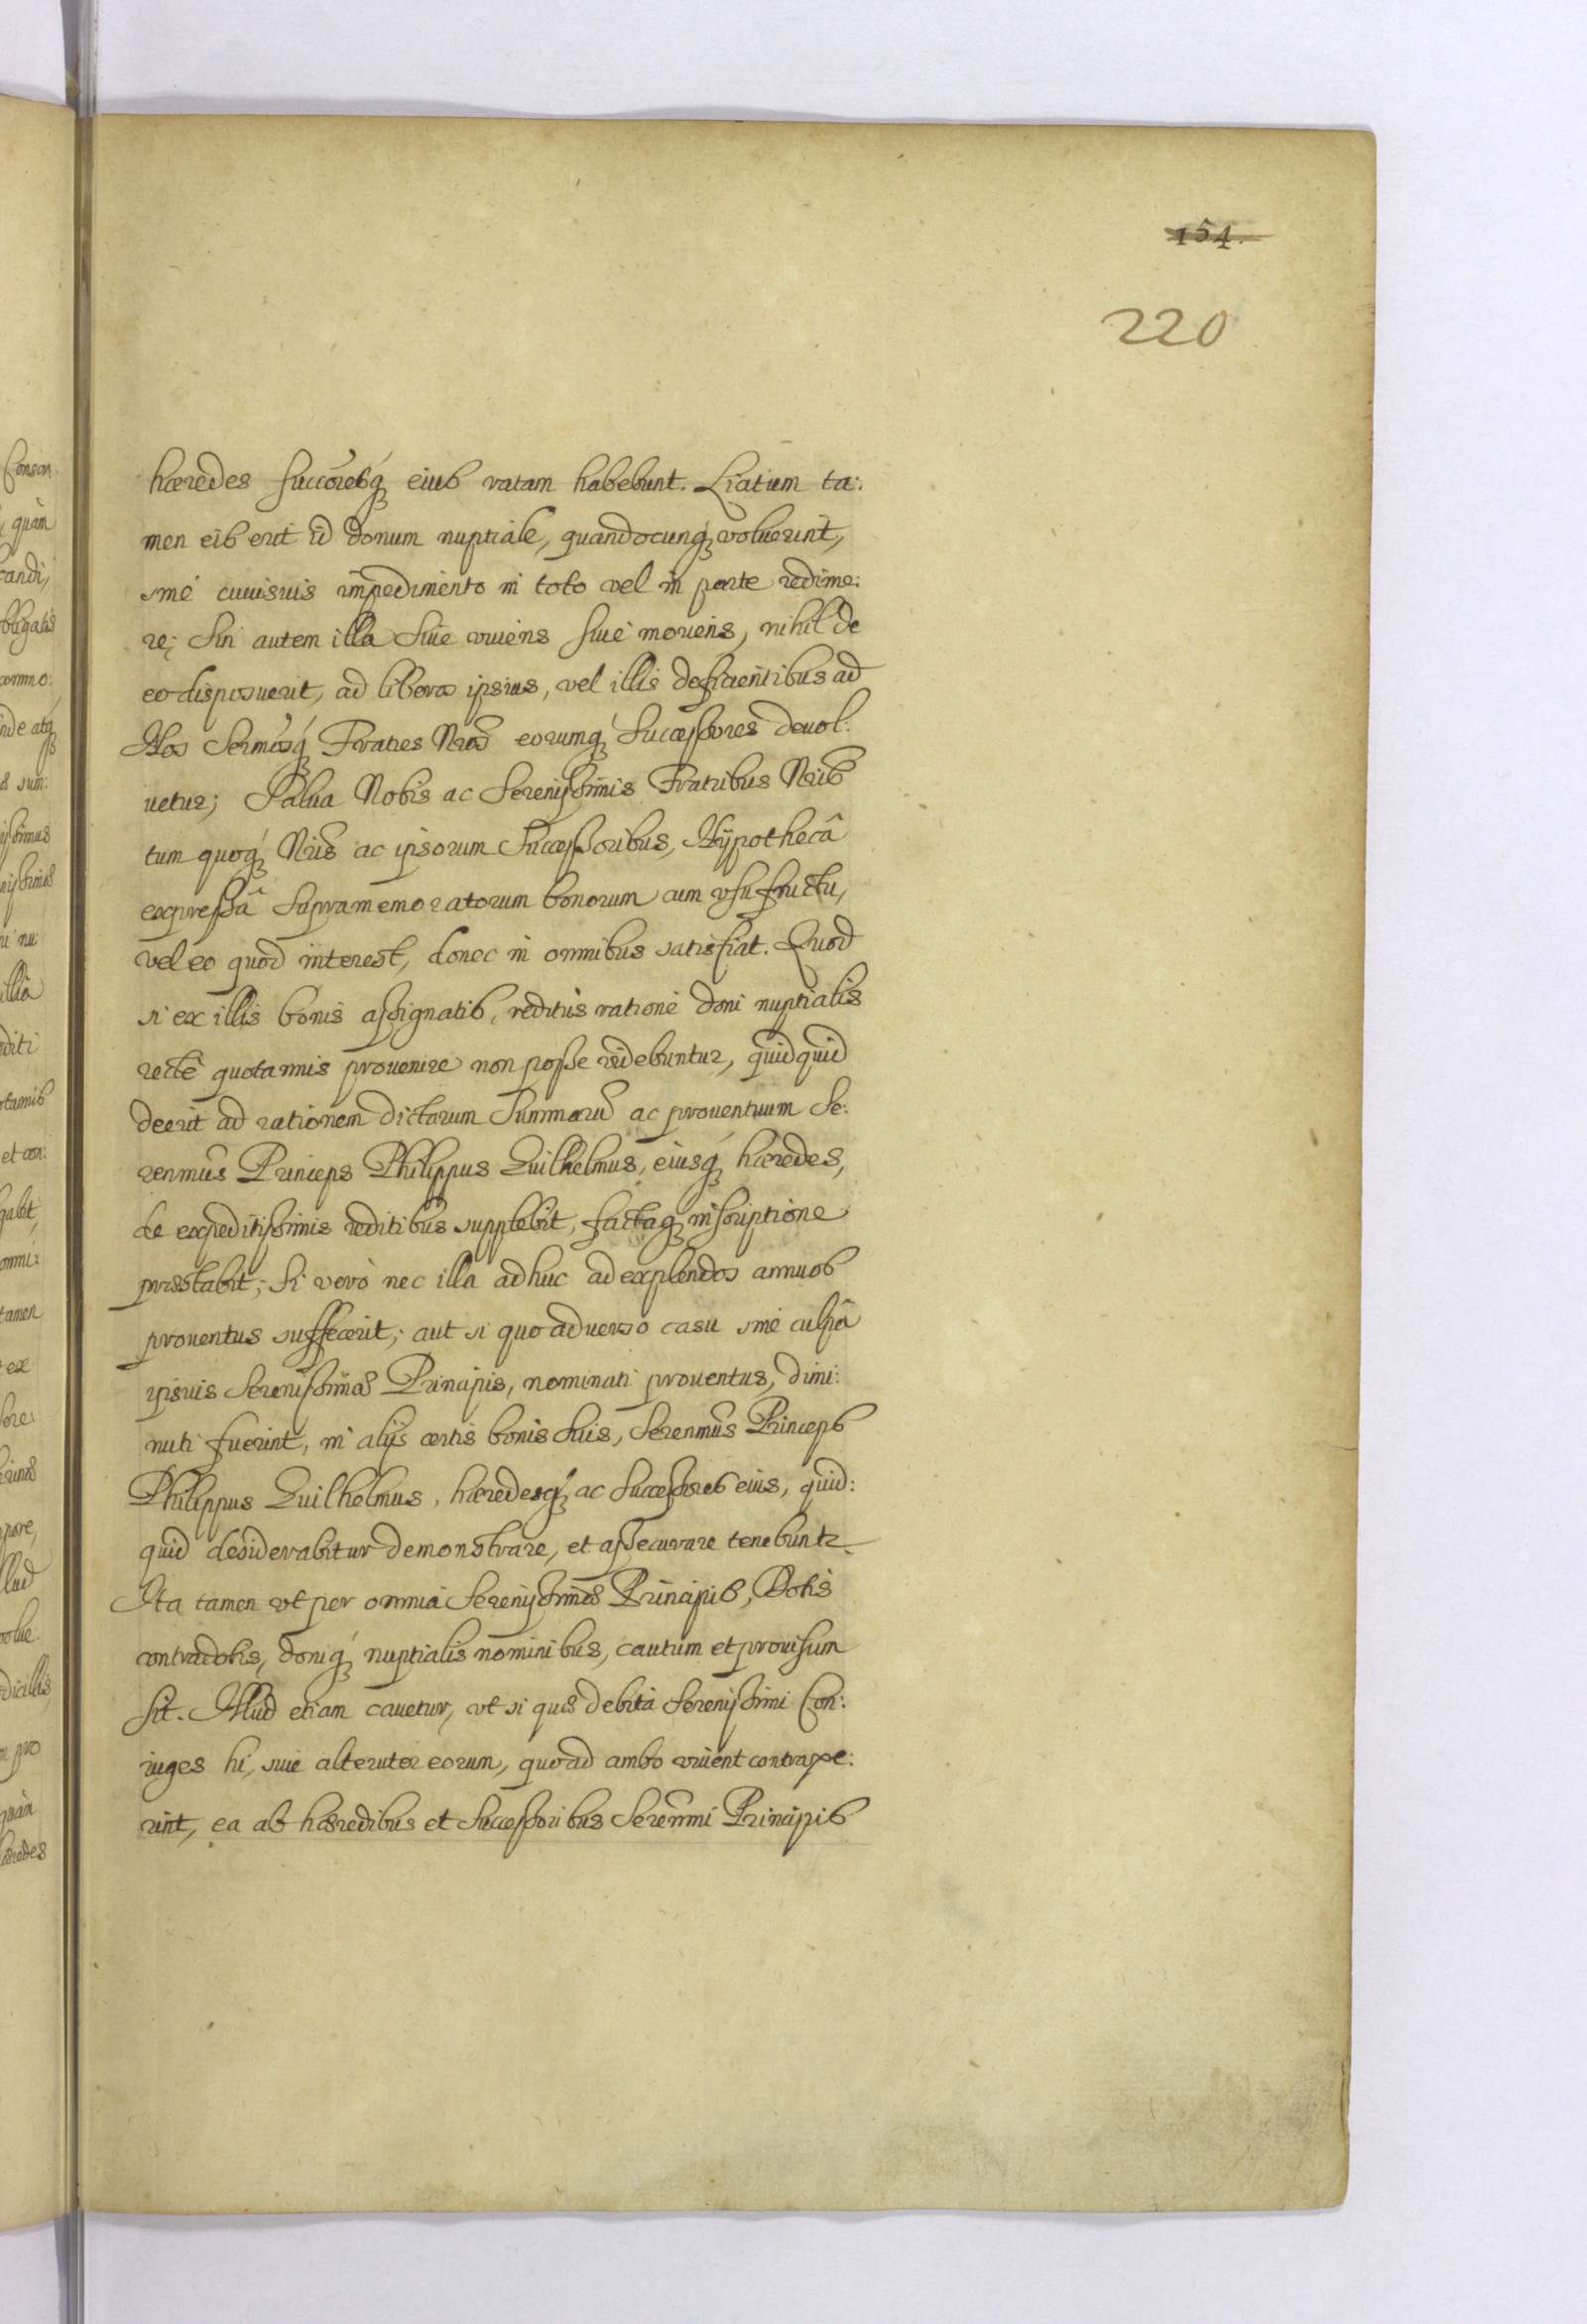 154.
220
hæredes succoresq́ eius ratam habebunt. Liatum ta:
men eis erit id donum nuptiale, quandocunq́ voluerint,
sine cuiusuis impedimento in toto vel in parte redime:
re; Sin autem illa siue viuens siue moriens, nihil de
eo disposuerit, ad liberos ipsius, vel illis deficientibus ad
Nos Sermosq́ Fratres Nros eorumq́ Successores deuol:
uetur; Salua Nobis ac Serenissimis Fratribus Nris
tum quoq́ Nris ac ipsorum Successoribus, Hÿpothecâ
expressâ supramemoratorum bonorum cum vsufructu,
vel eo quod interest, donec in omnibus satisfiat. Quod
si ex illis bonis assignatis, reditus ratione doni nuptialis
rectè quotannis prouenire non posse videbuntur, quidquid
deerit ad rationem dictarum Summarū ac prouentuum Se:
renmus Princeps Philippus Guilhelmus, eiusq́ hæredes,
de expeditissimis reditibus supplebit, factaq́ inscriptione
præstabit; Si verò nec illa adhuc ad explendos annuos
prouentus suffecerit; aut si quo aduerso casu sine culpâ
ipsius Serenissimæ Principis, nominati prouentus, dimi:
nuti fuerint, in alijs certis bonis suis, Serenmus Princeps
Philippus Guilhelmus, hæredesq́ ac Successores eius, quid:
quid desiderabitur demonstrare, et assecurare tenebuntr
Ita tamen vt per omnia Serenissimæ Principis, Dotis
contradotis, doniq́ nuptialis nominibus, cautum et prouisum
sit. Illud etiam cauetur, vt si quæ debita Serenissimi Con:
iuges hi, siue alteruter eorum, quoad ambo viuent contraxe:
rint, ea ab hæredibus et Successoribus Serenmi Principis